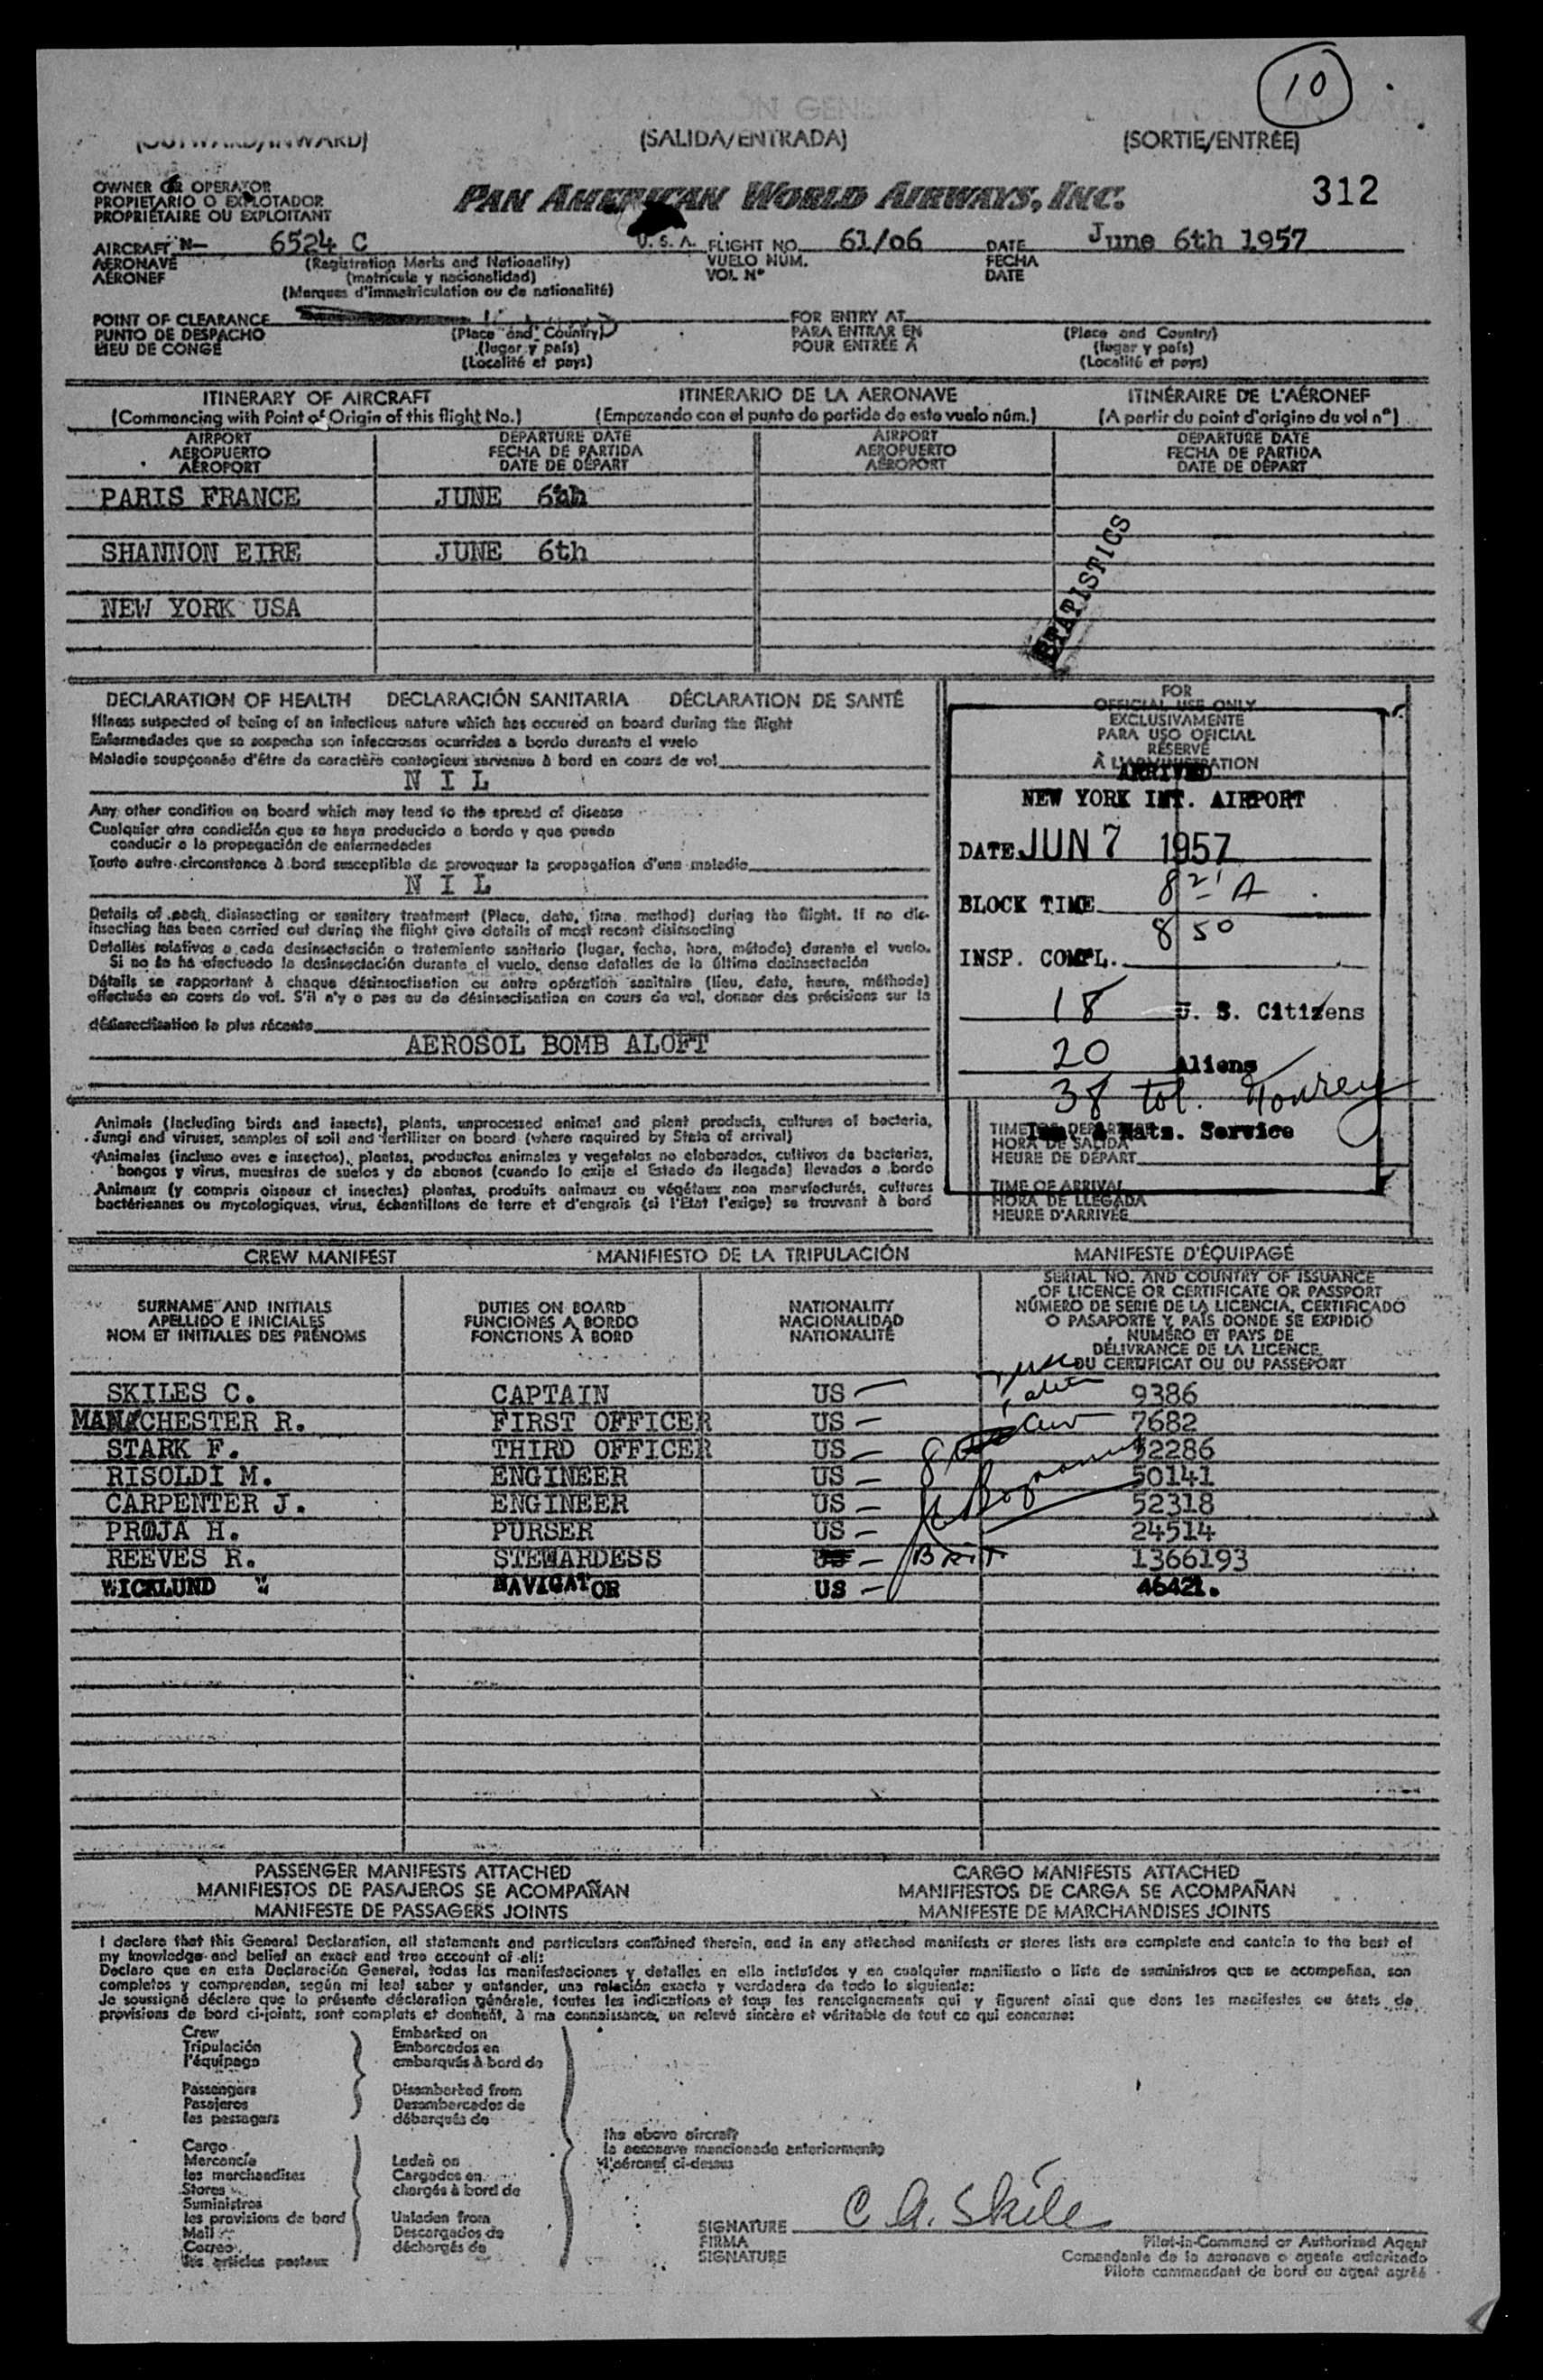 10
(OUTWARD/INWARD) (SALIDA/ENTRADA) (SORTIE/ENTRÉE)
OWNER OR OPERATOR
PROPIETARIO O EXPLOTADOR
PROPRIÉTAIRE OU EXPLOITANT
PAN AMERICAN WORLD AIRWAYS, INC. 312
AIRCRAFT N— 6524 C U. S. A. FLIGHT NO. 61/06 DATE June 6th 1957
AERONAVE (Registration Marks and Nationality) VUELO NÚM. FECHA
AÉRONEF (matrícula y nacionalidad) VOL Nº DATE
(Marques d'immatriculation ou de nationalité)
POINT OF CLEARANCE FOR ENTRY AT
PUNTO DE DESPACHO (Place and Country) PARA ENTRAR EN (Place and Country)
LIEU DE CONGÉ (lugar y país) POUR ENTRÉE À (lugar y país)
(Localité et pays) (Localité et pays)
ITINERARY OF AIRCRAFT ITINERARIO DE LA AERONAVE ITINÉRAIRE DE L'AÉRONEF
(Commencing with Point of Origin of this flight No.) (Empezando con el punto de partida de este vuelo núm.) (A partir du point d'origine du vol nº)
AIRPORT DEPARTURE DATE AIRPORT DEPARTURE DATE
AEROPUERTO FECHA DE PARTIDA AEROPUERTO FECHA DE PARTIDA
AÉROPORT DATE DE DÉPART AÉROPORT DATE DE DÉPART
PARIS FRANCE JUNE 6th
SHANNON EIRE JUNE 6th
NEW YORK USA
STATISTICS
DECLARATION OF HEALTH DECLARACIÓN SANITARIA DÉCLARATION DE SANTÉ
Illness suspected of being of an infectious nature which has occured on board during the flight
Enfermedades que se sospecha son infecciosas ocurridas a bordo durante el vuelo
Maladie soupçonnée d'être de caractère contagieux survenue à bord en cours de vol
N I L
Any other condition on board which may lead to the spread of disease
Cualquier otra condición que se haya producido a bordo y que pueda
conducir a la propagación de enfermedades
Toute autre circonstance à bord susceptible de provoquer la propagation d'une maladie
N I L
Details of each disinsecting or sanitary treatment (Place, date, time, method) during the flight. If no dis-
insecting has been carried out during the flight give details of most recent disinsecting
Detalles relativos a cada desinsectación o tratamiento sanitario (lugar, fecha, hora, método) durante el vuelo.
Si no se ha efectuado la desinsectación durante el vuelo, dense detalles de la última desinsectación
Détails se rapportant à chaque désinsectisation ou autre opération sanitaire (lieu, date, heure, méthode)
effectuée en cours de vol. S'il n'y a pas eu de désinsectisation en cours de vol, donner des précisions sur la
désinsectisation la plus récente
AEROSOL BOMB ALOFT
FOR
OFFICIAL USE ONLY
EXCLUSIVAMENTE
PARA USO OFICIAL
RÉSERVÉ
À L'ADMINISTRATION
ARRIVED
NEW YORK INT. AIRPORT
DATE JUN 7 1957
BLOCK TIME 8 21 A
INSP. COMPL. 8 50
18 U. S. Citizens
20 Aliens
38 tot.
Imm. & Natz. Service
Animals (Including birds and insects), plants, unprocessed animal and plant products, cultures of bacteria,
fungi and viruses, samples of soil and fertilizer on board (where required by State of arrival)
Animales (incluso aves e insectos), plantas, productos animales y vegetales no elaborados, cultivos de bacterias,
hongos y virus, muestras de suelos y de abonos (cuando lo exija el Estado de llegada) llevados a bordo
Animaux (y compris oiseaux et insectes) plantes, produits animaux ou végétaux non manufacturés, cultures
bactériennes ou mycologiques, virus, échantillons de terre et d'engrais (si l'Etat l'exige) se trouvant à bord
TIME OF DEPARTURE
HORA DE SALIDA
HEURE DE DÉPART
TIME OF ARRIVAL
HORA DE LLEGADA
HEURE D'ARRIVÉE
CREW MANIFEST MANIFIESTO DE LA TRIPULACIÓN MANIFESTE D'ÉQUIPAGE
SURNAME AND INITIALS
APELLIDO E INICIALES
NOM ET INITIALES DES PRÉNOMS
DUTIES ON BOARD
FUNCIONES A BORDO
FONCTIONS À BORD
NATIONALITY
NACIONALIDAD
NATIONALITÉ
SERIAL NO. AND COUNTRY OF ISSUANCE
OF LICENCE OR CERTIFICATE OR PASSPORT
NÚMERO DE SERIE DE LA LICENCIA, CERTIFICADO
O PASAPORTE Y PAÍS DONDE SE EXPIDIÓ
NUMÉRO ET PAYS DE
DÉLIVRANCE DE LA LICENCE,
DU CERTIFICAT OU DU PASSEPORT
SKILES C. CAPTAIN US 9386
MANCHESTER R. FIRST OFFICER US 7682
STARK F. THIRD OFFICER US 52286
RISOLDI M. ENGINEER US 50141
CARPENTER J. ENGINEER US 52318
PROJA H. PURSER US 24514
REEVES R. STEWARDESS BRIT 1366193
WICKLUND NAVIGATOR US 46421.
PASSENGER MANIFESTS ATTACHED CARGO MANIFESTS ATTACHED
MANIFIESTOS DE PASAJEROS SE ACOMPAÑAN MANIFIESTOS DE CARGA SE ACOMPAÑAN
MANIFESTE DE PASSAGERS JOINTS MANIFESTE DE MARCHANDISES JOINTS
I declare that this General Declaration, all statements and particulars contained therein, and in any attached manifests or stores lists are complete and contain to the best of
my knowledge and belief an exact and true account of all:
Declaro que en esta Declaración General, todas las manifestaciones y detalles en ella incluídos y en cualquier manifiesto o lista de suministros que se acompañan, son
completos y comprenden, según mi leal saber y entender, una relación exacta y verdadera de todo lo siguiente:
Je soussigné déclare que la présente déclaration générale, toutes les indications et tous les renseignements qui y figurent ainsi que dans les manifestes ou états de
provisions de bord ci-joints, sont complets et donnent, à ma connaissance, un relevé sincère et véritable de tout ce qui concerne:
Crew Embarked on
Tripulación Embarcados en
l'équipage embarqués à bord de
Passengers Disembarked from
Pasajeros Desembarcados de
les passagers débarqués de
the above aircraft
la aeronave mencionada anteriormente
l'aéronef ci-dessus
Cargo
Mercancía Laden on
les marchandises Cargados en
Stores chargés à bord de
Suministros
les provisions de bord Unladen from
Mail Descargados de
Correo déchargés de
les articles postaux
SIGNATURE C A. Skile
FIRMA
SIGNATURE
Pilot-in-Command or Authorized Agent
Comandante de la aeronave o agente autorizado
Pilote commandant de bord ou agent agréé